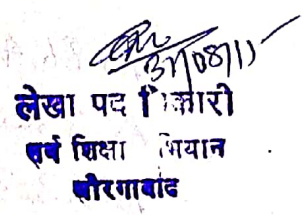 31/08/11
लेखा पदाधिकारी
सर्व शिक्षा अभियान
औरंगाबाद